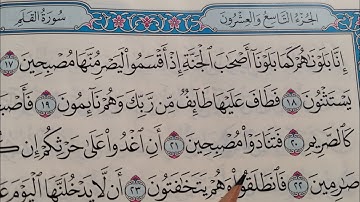 الجزء التاسع والعشرون
سورة القلم
إِنَّا بَلَوْنَاهُمْ كَمَا بَلَوْنَا أَصْحَابَ الْجَنَّةِ إِذْ أَقْسَمُوا لَيَصْرِمُنَّهَا مُصْبِحِينَ ١٧
يَسْتَثْنُونَ ١٨ فَطَافَ عَلَيْهَا طَائِفٌ مِّن رَّبِّكَ وَهُمْ نَائِمُونَ ١٩ فَأَصْبَ
كَالصَّرِيمِ ٢٠ فَتَنَادَوْا مُصْبِحِينَ ٢١ أَنِ اغْدُوا عَلَى حَرْثِكُمْ إِن كُ
صَارِمِينَ ٢٢ فَانطَلَقُوا وَهُمْ يَتَخَافَتُونَ ٢٣ أَن لَّا يَدْخُلَنَّهَا الْيَوْمَ عَ